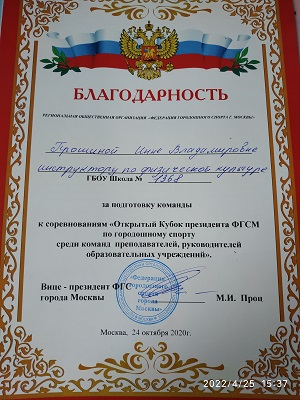 БЛАГОДАРНОСТЬ
РЕГИОНАЛЬНАЯ ОБЩЕСТВЕННАЯ ОРГАНИЗАЦИЯ «ФЕДЕРАЦИЯ ГОРОДОШНОГО СПОРТА Г. МОСКВЫ»
Прошиной Инне Владимировне
инструктору по физической культуре
ГБОУ Школа № 1368
за подготовку команды
к соревнованиям «Открытый Кубок президента ФГСМ
по городошному спорту
среди команд преподавателей, руководителей
образовательных учреждений».
Вице - президент ФГС
города Москвы
М.И. Проц
«Федерация
городошного
спорта
города
Москвы»
Москва, 24 октября 2020г.
2022/4/25 15:37